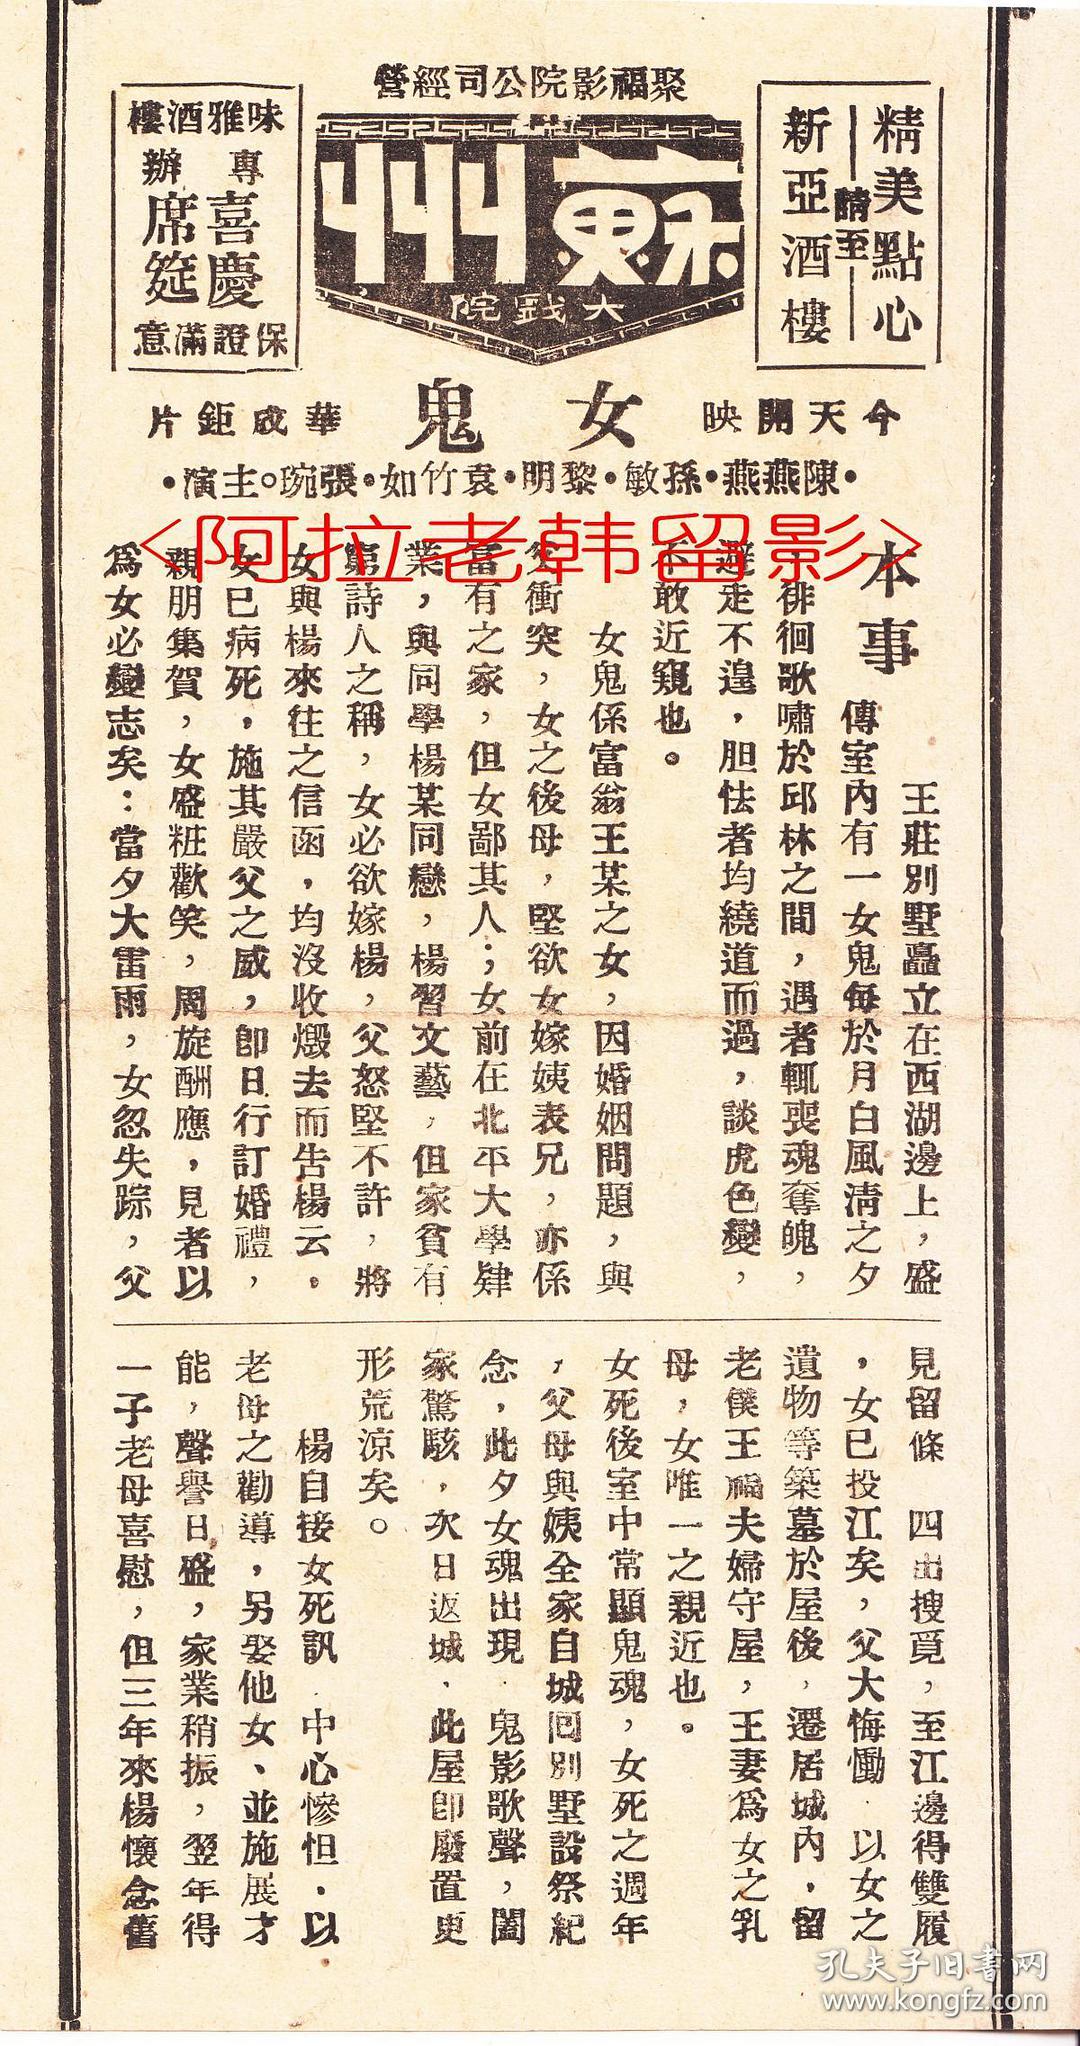 營經司公院影福聚
精美點心
請至
新亞酒樓
蘇州
院戲大
樓酒雅味
專辦
喜慶
席筵
意滿證保
映開天今
鬼女
片鉅成華
•演主。琬張•如竹袁•明黎•敏孫•燕燕陳•
<阿拉老韩留影>
本事
王莊別墅矗立在西湖邊上，盛
傳室內有一女鬼每於月白風淸之夕
，徘徊歌嘯於邱林之間，遇者輒喪魂奪魄，
避走不遑，胆怯者均繞道而過，談虎色變，
不敢近窺也。
女鬼係富翁王某之女，因婚姻問題，與
父衝突，女之後母，堅欲女嫁姨表兄，亦係
富有之家，但女鄙其人；女前在北平大學肄
業，與同學楊某同戀，楊習文藝，但家貧有
窮詩人之稱，女必欲嫁楊，父怒堅不許，將
女與楊來往之信函，均沒收燬去而告楊云。
女已病死，施其嚴父之威，卽日行訂婚禮，
親朋集賀，女盛粧歡笑，周旋酬應，見者以
爲女必變志矣：當夕大雷雨，女忽失踪，父
見留條 四出搜覓，至江邊得雙履
，女已投江矣，父大悔慟．以女之
遺物等築墓於屋後，遷居城內，留
老僕王福夫婦守屋，王妻爲女之乳
母，女唯一之親近也。
女死後室中常顯鬼魂，女死之週年
，父母與姨全家自城回別墅設祭紀
念，此夕女魂出現 鬼影歌聲，闔
家驚駭，次日返城．此屋卽廢置更
形荒涼矣。
楊自接女死訊．中心慘怛．以
老母之勸導，另娶他女、並施展才
能，聲譽日盛，家業稍振，翌年得
一子老母喜慰，但三年來楊懷念舊
孔夫子旧書网
www.kongfz.com